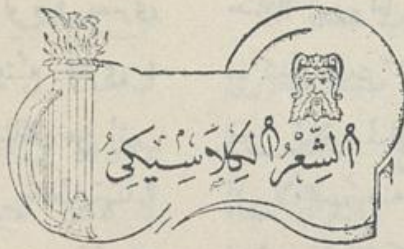 الشِّعْرُ الكِلاَسِيكِيُّ